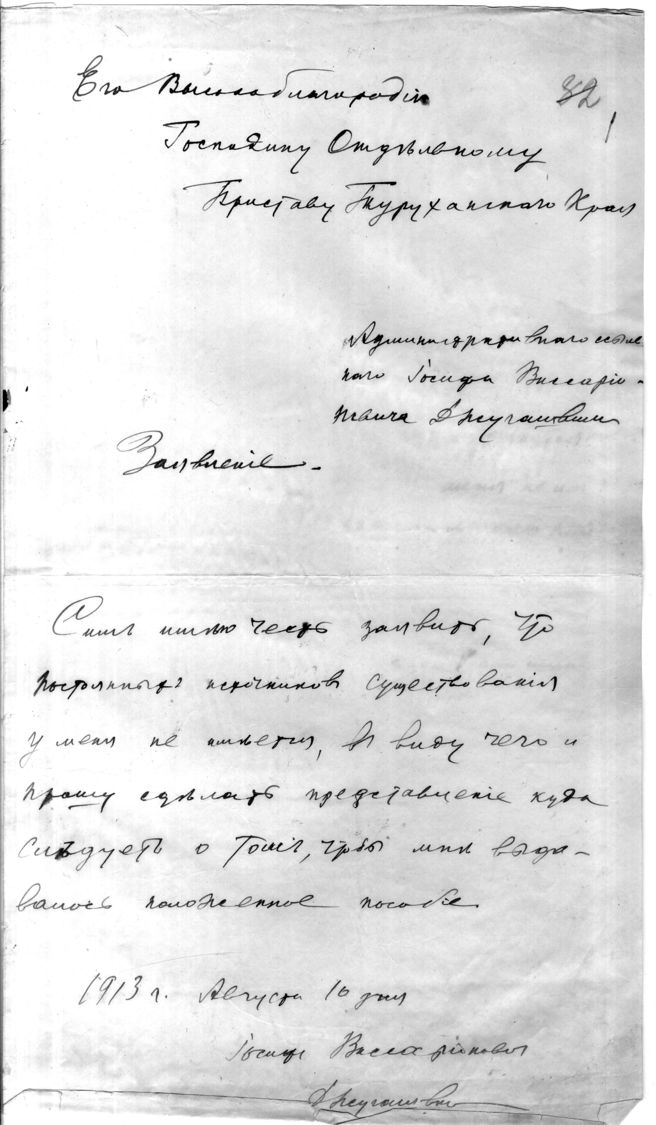 Его Высокоблагородію
82
Господину Отдѣльному
Приставу Туруханскаго Края
Административнаго ссыль-
наго Іосифа Виссаріо-
новича Джугашвили
Заявленіе.
Симъ имѣю честь заявить, что
постоянныхъ источниковъ существованія
у меня не имѣется, въ виду чего и
прошу сдѣлать представленіе куда
слѣдуетъ о томъ, чтобы мнѣ выда-
валось положенное пособіе.
1913 г. Августа 16 дня
Іосифъ Виссаріоновичъ
Джугашвили